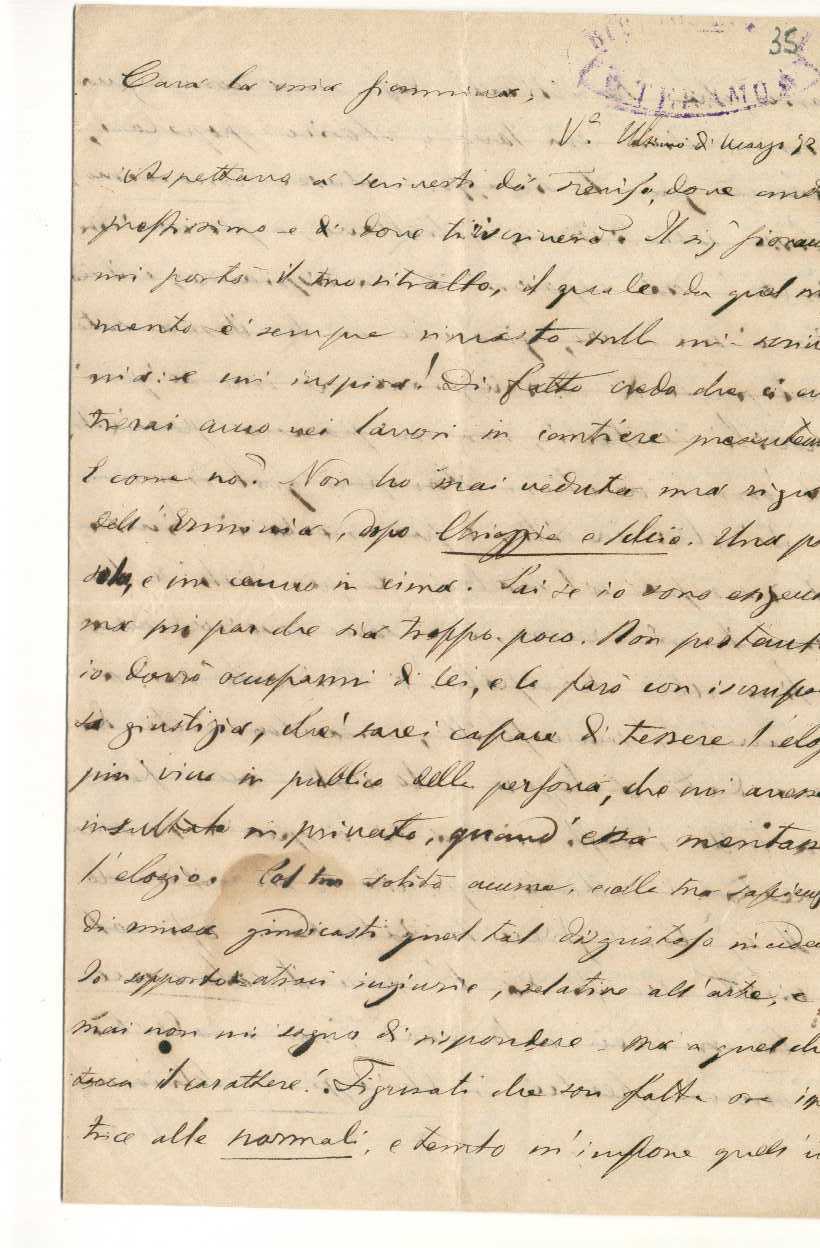 35
TERAMO
Cara la mia Giannina,
V.ª Ultimo di Marzo 92
Aspettava a scriverti da Treviso, dove
prestissimo e di dove ti scriverò. Il sig
mi portò il tuo ritratto, il quale da quel mo
mento è sempre rimasto sulla mia scriva
nia: e mi inspira! Di fatto credo che ci en
trerai anco nei lavori in cantiere
E come no? Non ho mai veduta una riga
dell'Erminia, dopo e. Una
sola, e un cenno in cima. Sai se io sono
ma mi par che sia troppo poco. Non pertanto
io dovrò occuparmi di lei, e lo farò con iscrupolo
sa giustizia, chè sarei capace di tessere l'elog
più vivo in publico della persona, che mi avesse
insultata in privato, quand'essa meritasse
l'elogio. Col tuo solito acume, e colla tua sapienza
di musa giudicasti quel tal disgustoso incide
Io sopporto atroci ingiurie, relative all'arte, e
mai non mi sogno di rispondere. Ma a quel che
tocca il carattere! Figurati che son fatta ora
trice alle normali, e tento m'impone quell'